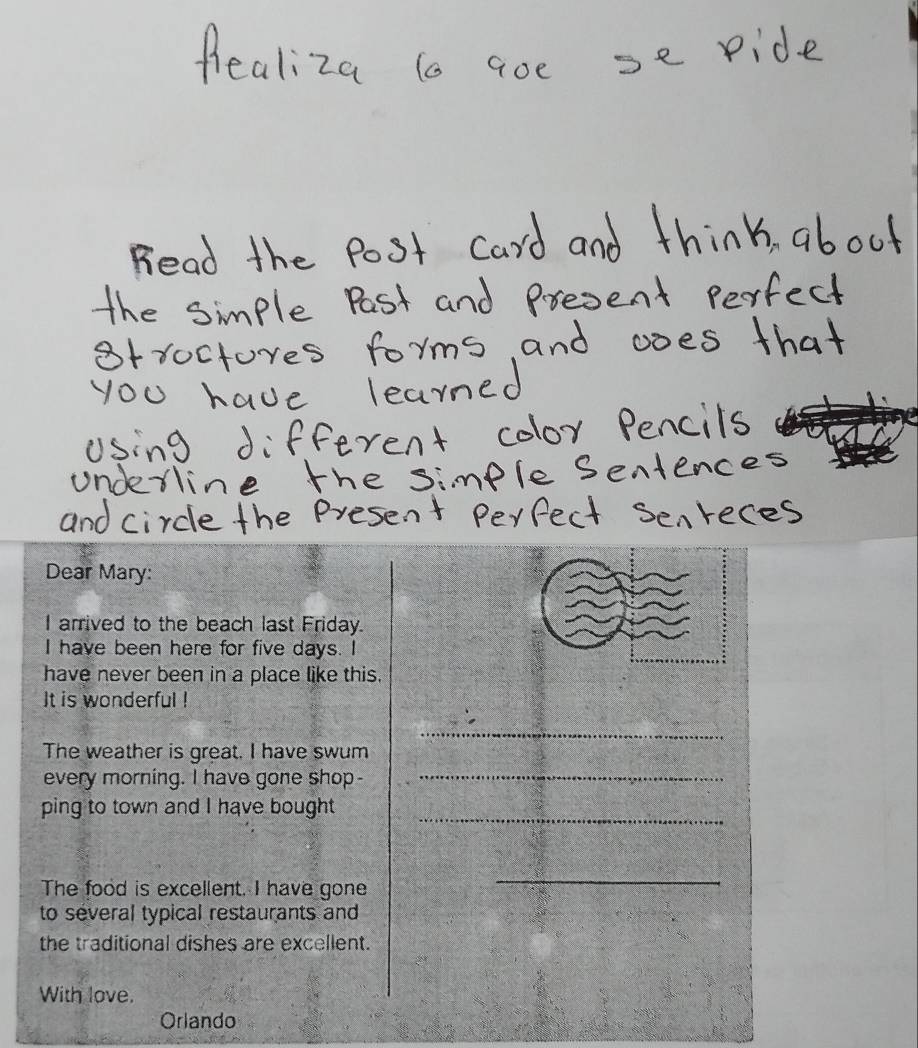 Realiza lo que se pide
Read the Post Card and think, about
the simple Past and Present Perfect
structures forms, and uses that
you have learned
Using different color Pencils
underline the simple Sentences
and circle the Present Perfect senteces
Dear Mary:
I arrived to the beach last Friday.
I have been here for five days. I
have never been in a place like this.
It is wonderful !
The weather is great. I have swum
every morning. I have gone shop-
ping to town and I have bought
The food is excellent. I have gone
to several typical restaurants and
the traditional dishes are excellent.
With love.
Orlando